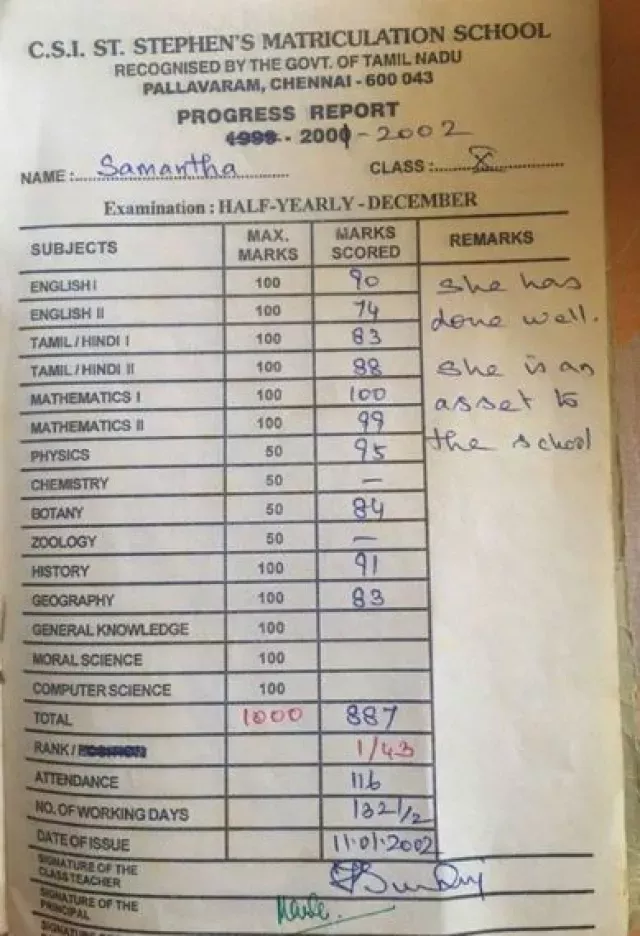 C.S.I. ST. STEPHEN'S MATRICULATION SCHOOL
RECOGNISED BY THE GOVT. OF TAMIL NADU
PALLAVARAM, CHENNAI - 600 043
PROGRESS REPORT
1999 - 2000 - 2002
NAME : Samantha CLASS : X
Examination : HALF-YEARLY - DECEMBER
SUBJECTS MAX. MARKS MARKS SCORED REMARKS
ENGLISH I 100 90 She has
ENGLISH II 100 74 done well.
TAMIL / HINDI I 100 83
TAMIL / HINDI II 100 88 She is an
MATHEMATICS I 100 100 asset to
MATHEMATICS II 100 99 the school
PHYSICS 50 95
CHEMISTRY 50 —
BOTANY 50 84
ZOOLOGY 50 —
HISTORY 100 91
GEOGRAPHY 100 83
GENERAL KNOWLEDGE 100
MORAL SCIENCE 100
COMPUTER SCIENCE 100
TOTAL 1000 887
RANK / 1/43
ATTENDANCE 116
NO. OF WORKING DAYS 132 1/2
DATE OF ISSUE 11.01.2002
SIGNATURE OF THE CLASS TEACHER
SIGNATURE OF THE PRINCIPAL